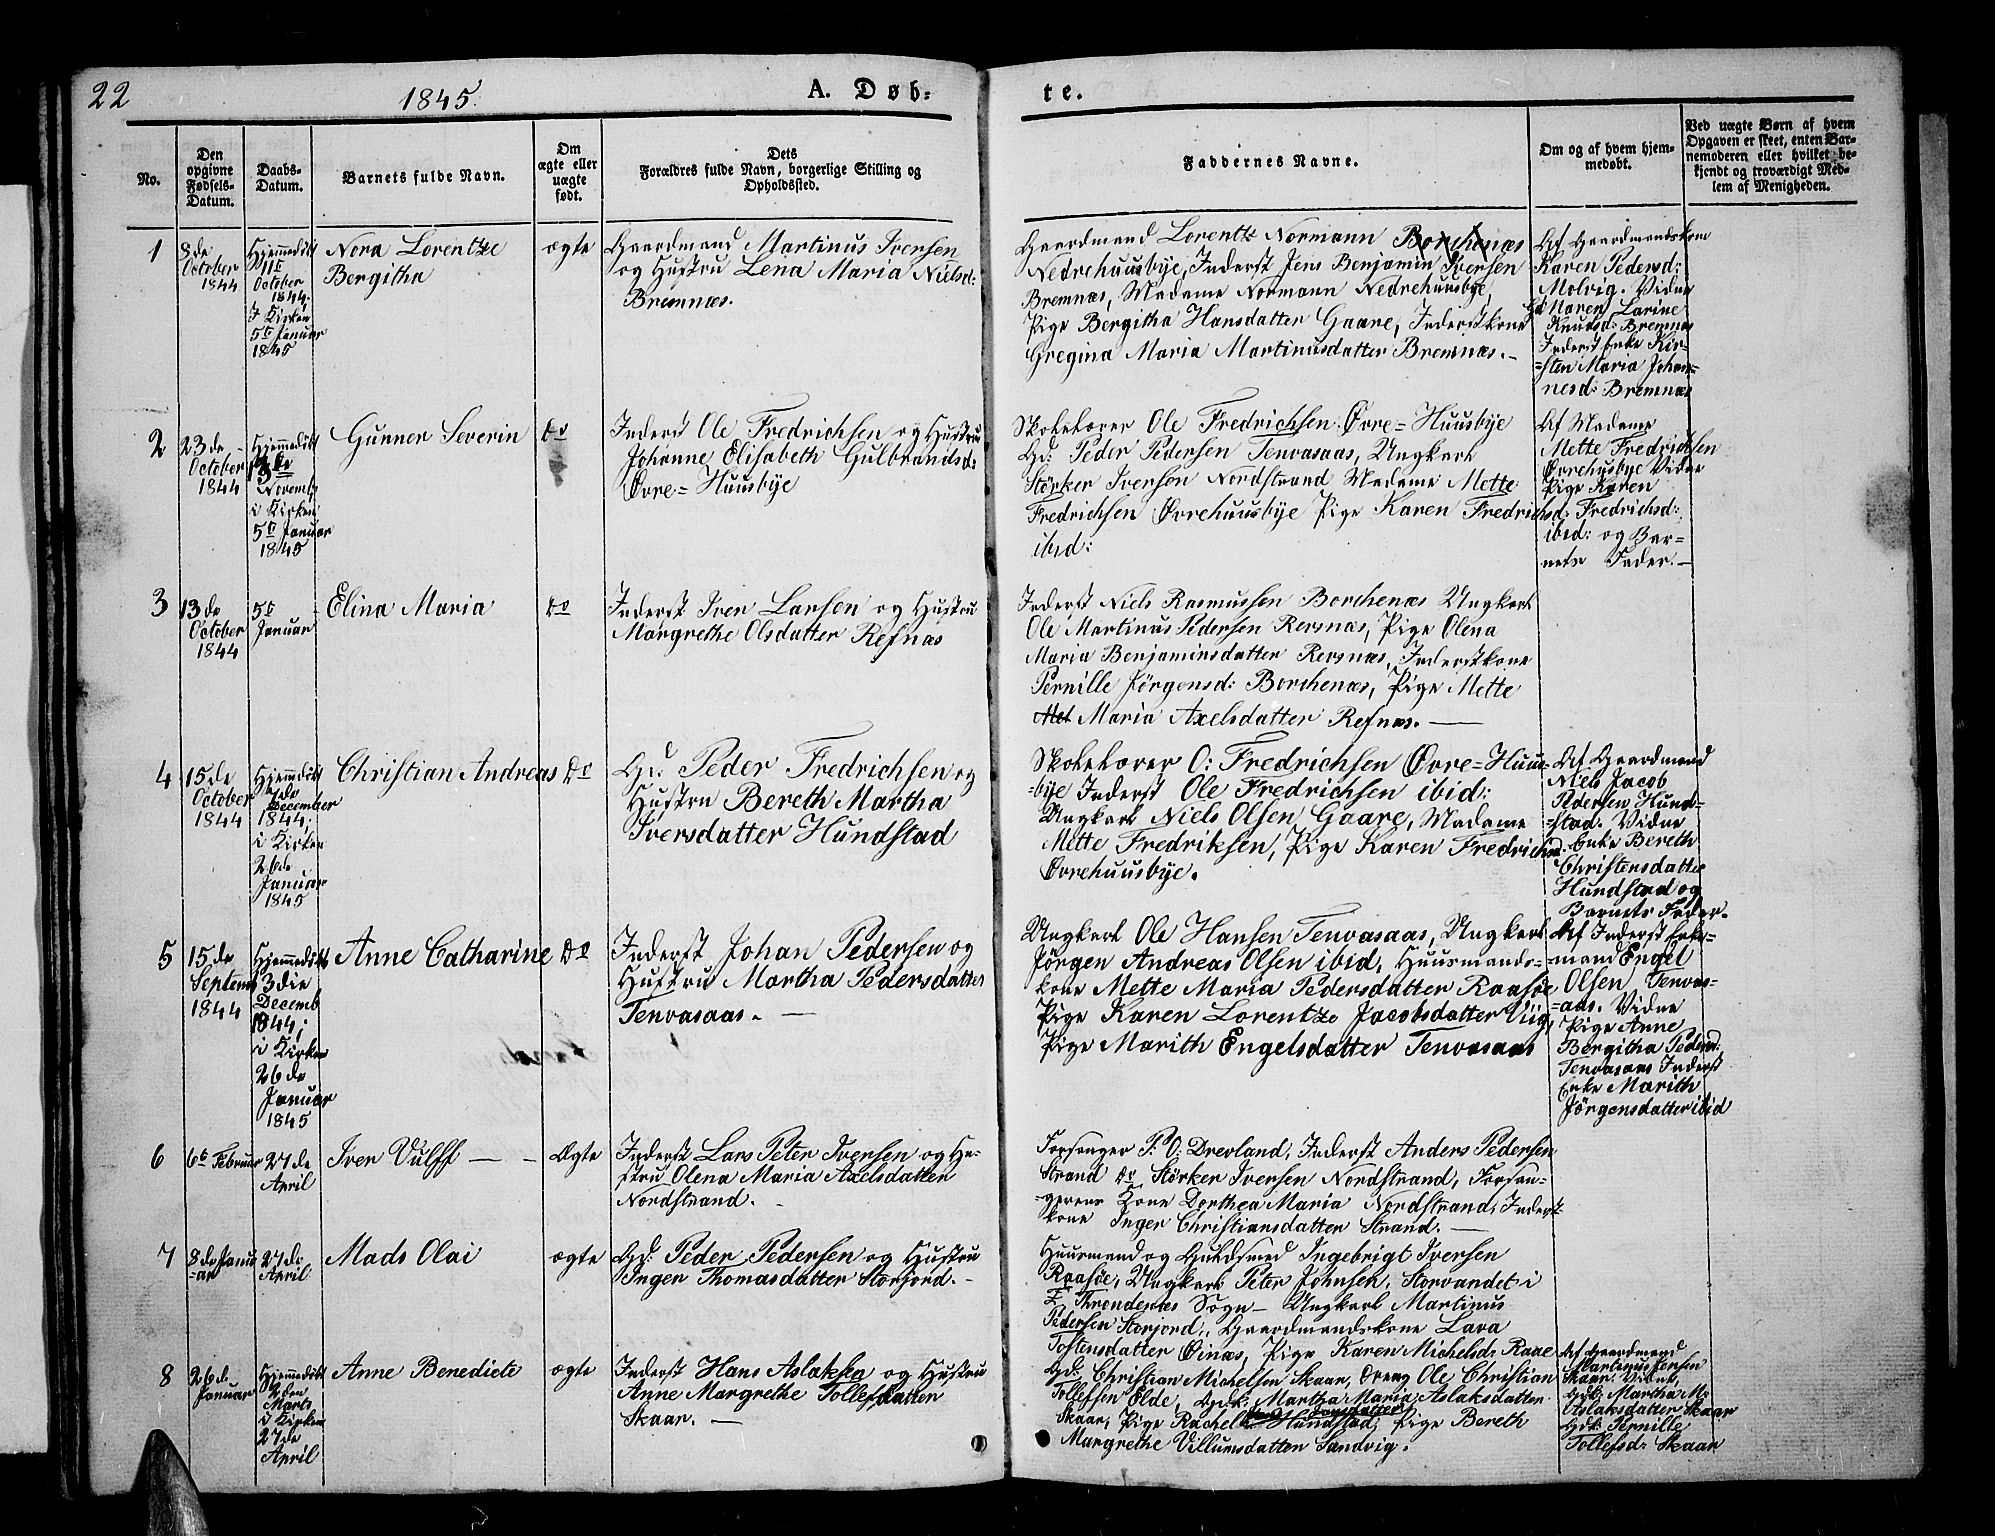 22
1845.
A. Døb=
te.
No.
Den opgivne Fødsels-Datum.
Daabs-Datum.
Barnets fulde Navn.
Om ægte eller uægte født.
Dets Forældres fulde Navn, borgerlige Stilling og Opholdssted.
Faddernes Navne.
Om og af hvem hjemmedøbt.
Ved uægte Børn af hvem
Opgaven er skeet, enten Bar-
nemoderen eller hvilket be-
kjendt og troværdigt Med-
lem af Menigheden.
1
8de
October
1844
Hjemmedöbt
11te
October
1844.
I Kirken
5te Januar
1845
Nora Lorentze
Bergitha
ægte
Gaardmand Martinus Iversen
og Hustru Lena Maria Nielsd:
Bremnæs.
Gaardmand Lorentz Normann Borchenæs
Nedrehuusbye, Inderst Jens Benjamin Iversen
Bremnæs, Madame Normann Nedrehuusbye,
Pige Bergitha Hansdatter Gaare, Inderstkone
Gregina Maria Martinusdatter Bremnæs.-
Af Gaardmandskone
Karen Pedersd:
Molvig. Vidne
Gd: Maren Larine
Knudsd: Bremnæs
Inderst Enke Kir-
=sten Maria Johan-
nesd: Bremnæs
2
23de
October
1844
Hjemmedöbt
13de
Novembr
i Kirken
5te Januar
1845
Gunner Severin
do
Inderst Ole Fredrichsen og Hustru
Johanne Elisabeth Gulbrandsd:
Øvre=Huusbye
Skolelærer Ole Fredrichsen Øvre=Huusbye
Gd: Peder Pedersen Tenvasaas, Ungkarl
Störker Iversen Nordstrand Madame Mette
Fredrichsen Øvrehuusbye Pige Karen Fredrichsd:
ibid:
Af Madame
Mette Fredrichsen
Øvrehusbye Vidne
Pige Karen
Fredrichsd:
ibid: og Bar=
nets Fader.-
3
13de
October
1844
5te
Januar
Elina Maria
do
Inderst Iver Larsen og Hustru
Margrethe Olsdatter Refnæs
Inderst Niels Rasmussen Borchenæs Ungkarl
Ole Martinus Pedersen Revsnæs, Pige Olena
Maria Benjaminsdatter Revsnæs, Inderstkone
Pernille Jörgensd: Borchenæs, Pige Mette
Met Maria Axelsdatter Refnæs.
4
15de
October
1844
Hjemmdöbt
7de
December
1844;
i Kirken
26de
Januar
1845
Christian Andreas
Do
Gd. Peder Fredrichsen og
Hustru Bereth Martha
Iversdatter Hundstad
Skolelærer O: Fredrichsen Øvre=Huus-
=bye Inderst Ole Fredrichsen ibid:
Ungkarl Niels Olsen Gaare, Madame
Mette Fredriksen, Pige Karen Fredrichsd.
Øvrehuusbye.
Af Gaardmand
Niels Jacob
Pedersen Hund=
=stad. Vidne
Enke Bereth
Christensdatter
Hundstad og
Barnets Fader.
5
15de
Septemb
1844
Hjemmedöbt
3die
Decemb
1844;
i Kirken
26de
Januar
1845
Anne Catharine
Do
Inderst Johan Pedersen og
Hustru Martha Pedersdatter
Tenvasaas.
Ungkarl Ole Hansen Tenvasaas, Ungkarl
Jörgen Andreas Olsen ibid, Huusmands=
kone Mette Maria Pedersdatter Raasöe
Pige Karen Lorentze Jacobsdatter Viig,
Pige Marith Engelsdatter Tenvasaas
Af Inderst Enke=
=mand Engel
Olsen Tenvas-
=aas. Vidne
Pige Anne
Bergitha Pedersd:
Tenvasaas Inderst
Enke Marith
Jörgensdatter ibid
6
6te Februar
27de
April
Iver Vulff
Ægte
Inderst Lars Peter Iversen og Hu=
stru Olena Maria Axelsdatter
Nordstrand.
Forsanger P. O. Drevland, Inderst Anders Pedersen
Strand do Störker Iversen Nordstrand, Forsan=
=gerens Kone Dorthea Maria Nordstrand, Inderst
kone Inger Christiansdatter Strand.
7
8de Janu
=ar
27de
April
Mads Olai
ægte
Gd: Peder Pedersen og Hustru
Inger Thomasdatter Storjord.
Huusmand og Guldsmed Ingebrigt Iversen
Raasöe, Ungkarl Peter Johnsen, Storvandet i
Throndenæs Sogn- Ungkarl Martinus
Pedersen Storjord, Gaardmandskone Lava
Tostensdatter Øinæs, Pige Karen Michelsd: Raae
8
26de
Januar
Hjemmedöbt
2den
Marts
i Kirken
27de
April
Anne Benedicte
ægte
Inderst Hans Aslaksen og Hustru
Anne Margrethe Tollefsdatter
Skaar.
Gd: Christian Michelsen Skaar, Dreng Ole Christian
Tollefsen Elde, Gdk: Martha Maria Aslaksdatter
Skaar, Pige Rachel Hundstad, Pige Bereth
Margrethe Villumsdatter Sandvig.
Af Gaardmand
Martinus Jensen
Skaar. Vidne,
Gdk: Martha M:
Aslaksdatter Skaar
Gdk: Pernille
Tollefsd: Skaar